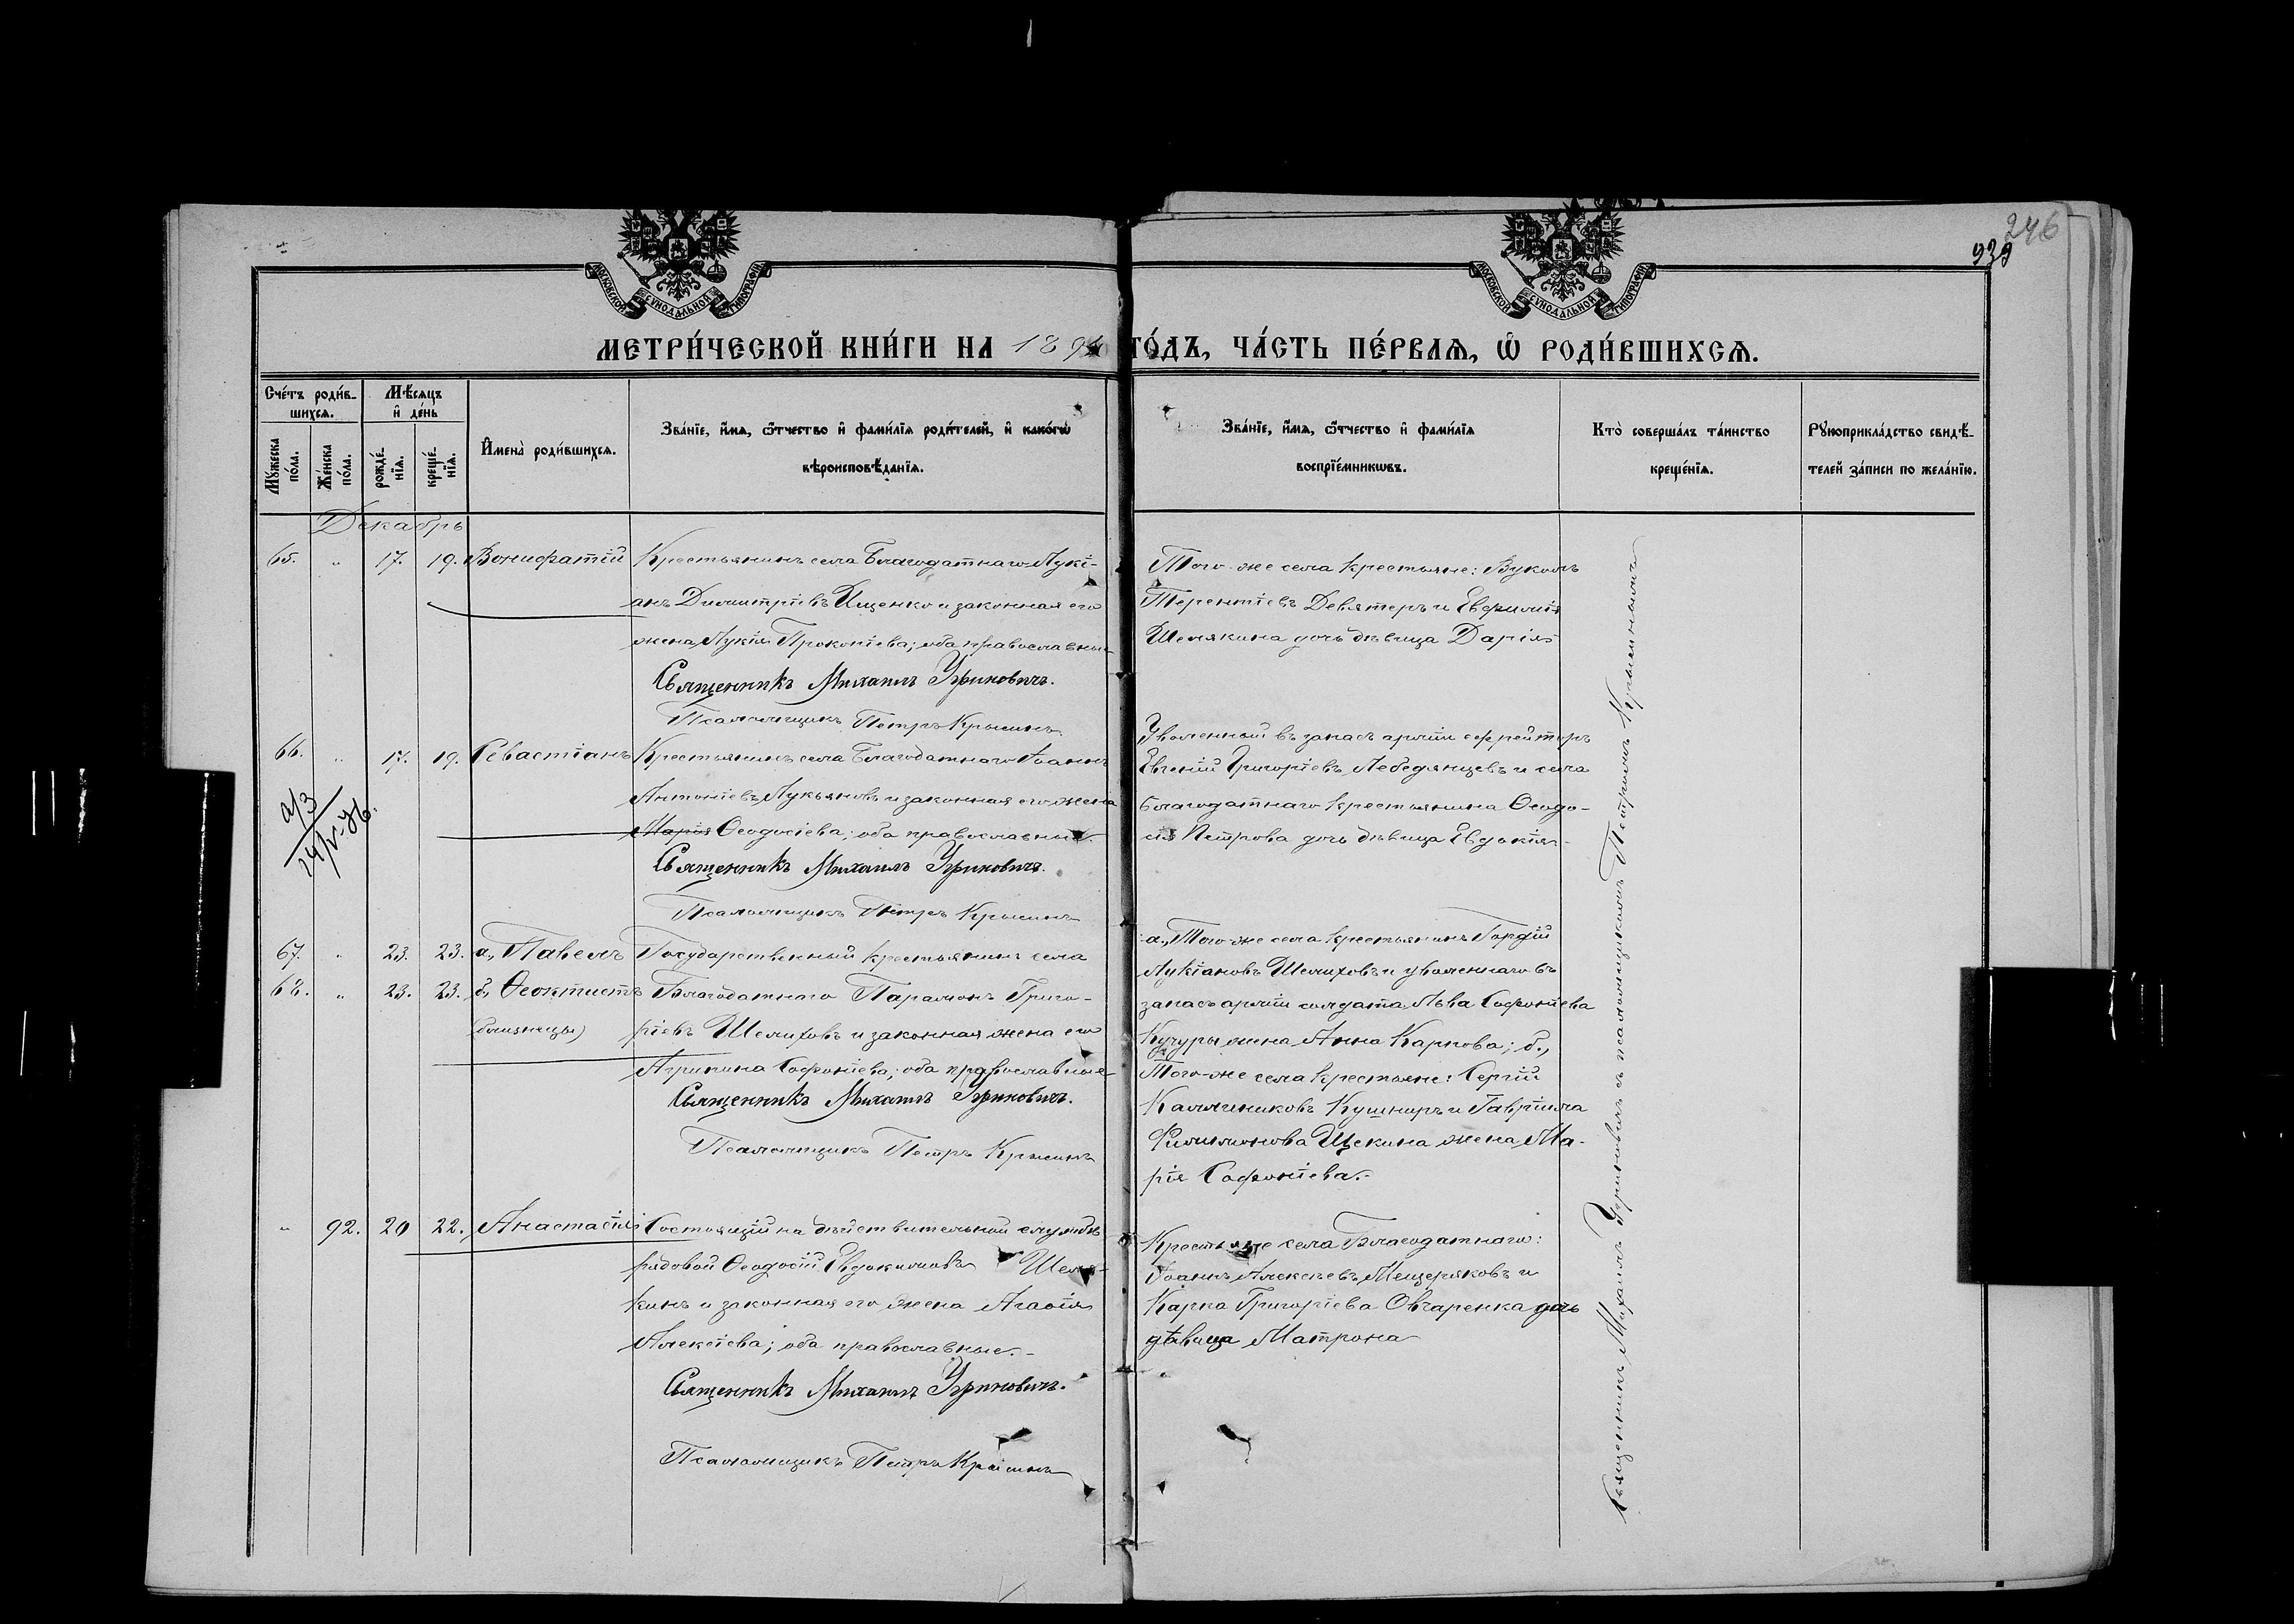 246
939
МОСКОВСКОЙ СѴНОДАЛЬНОЙ ТИПОГРАФІИ
МОСКОВСКОЙ СѴНОДАЛЬНОЙ ТИПОГРАФІИ
МЕТРИ́ЧЕСКОЙ КНИ́ГИ НА 189 ГО́ДЪ, ЧА́СТЬ ПЕ́РВАѦ, Ѡ҆ РОДИ́ВШИХСѦ.
Сче́тъ роди́в-
шихсѧ.
Мѣ́сѧцъ
и҆ де́нь
Мꙋ́жеска
по́ла.
Же́нска
по́ла.
рожде́-
нїѧ.
креще́-
нїѧ.
И҆мена̀ роди́вшихсѧ.
Зва́нїе, и҆́мѧ, ѻ҆́тчество и҆ фами́лїѧ роди́телей, и҆ како́гѡ
вѣроисповѣ́данїѧ.
Зва́нїе, и҆́мѧ, ѻ҆́тчество и҆ фами́лїѧ
воспрїе́мникѡвъ.
Кто̀ соверша́лъ та́инство
креще́нїѧ.
Рꙋкоприкла́дство свидѣ́-
телей за́писи по жела́нїю.
Декабрь
65. " 17. 19. Вонифатій Крестьянинъ села Благодатнаго Лукі-
анъ Димитріевъ Ищенко и законная его
жена Лукія Прокопіева; оба православные
Священникъ Михаилъ Угриновичъ.
Псаломщикъ Петръ Крысинъ
Того-же села крестьяне: Вуколъ
Терентіевъ Девятеръ и Евфимія
Шемякина дочь дѣвица Дарія
66. " 17. 19. Севастіанъ Крестьянинъ села Благодатнаго Іоаннъ
Антоніевъ Лукьяновъ и законная его жена
Марія Ѳеодосіева; оба православные.
Священникъ Михаилъ Угриновичъ.
Псаломщикъ Петръ Крысинъ
Уволенный въ запасъ арміи ефрейторъ
Евгеній Григоріевъ Лебедянцевъ и села
Благодатнаго крестьянина Ѳеодо-
сія Петрова дочь дѣвица Евдокія
67. " 23. 23. а., Павелъ Государственный крестьянинъ села
68. " 23. 23. б., Ѳеоктистъ Благодатнаго Парамонъ Григо-
(близнецы) ріевъ Шелиховъ и законная жена его
Агрипина Софоніева; оба православные
Священникъ Михаилъ Угриновичъ.
Псаломщикъ Петръ Крысинъ
а., Того-же села крестьянинъ Гордій
Лукіановъ Шелиховъ и уволеннаго въ
запасъ арміи солдата Льва Софоніева
Кучуры жена Анна Карпова; б.,
Того-же села крестьяне: Сергій
Каллиниковъ Кушниръ и Гавріила
Филимонова Щекина жена Ма-
рія Софоніева.-
" 92. 20 22. Анастасія Состоящій на дѣйствительной службѣ
рядовой Ѳеодосій Евдокимовъ Шемя-
кинъ и законная его жена Агаѳія
Алексіева; оба православные.-
Священникъ Михаилъ Угриновичъ.
Псаломщикъ Петръ Крысинъ
Крестьяне села Благодатнаго:
Іоаннъ Алексѣевъ Мещеряковъ и
Карпа Григоріева Овчаренка дочь
дѣвица Матрона
Священникъ Михаилъ Угриновичъ съ псаломщикомъ Петромъ Крысинымъ